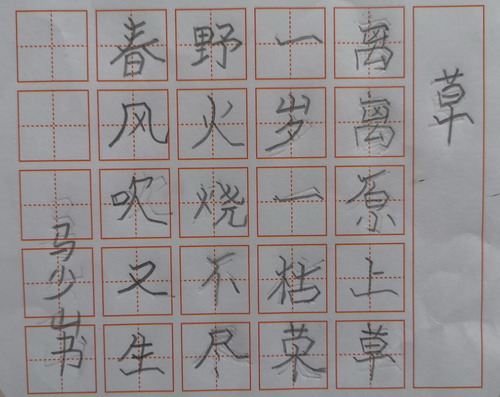 草
离离原上草
一岁一枯荣
野火烧不尽
春风吹又生
马少山书